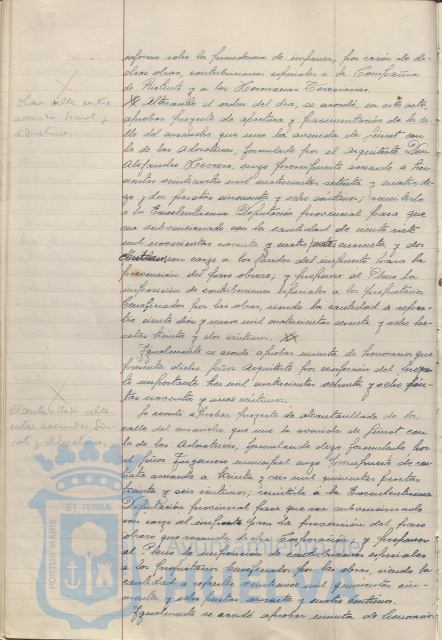 informe sobre la procedencia de imponer, por razón de di-
chas obras, contribuciones especiales a la Compañía
de Riotinto y a las Hermanas Teresianas.
Alterando el orden del día, se acordó, en este acto,
Obras calle entre
avenida Guiot y
Adoratrices
aprobar proyecto de apertura y pavimentación de la ca-
lle del ensanche que une la avenida de Guiot con
la de las Adoratrices, formulado por el Arquitecto Don
Alejandro Herrero, cuyo presupuesto asciende a tres-
cientas veinticuatro mil cuatrocientas setenta y cuatro di-
go, y dos pesetas cincuenta y ocho céntimos; remitirlo
a la Excelentísima Diputación provincial para que
sea subvencionado con la cantidad de
mil novecientas noventa y cuatro pesetas cuarenta y dos
céntimos, con cargo a los fondos del impuesto para la
prevención del paro obrero; y proponer al Pleno la
imposición de contribuciones especiales a los propietarios
beneficiados por las obras, siendo la cantidad a repar-
tir ciento diez y nueve mil cuatrocientas sesenta y ocho pe-
setas treinta y dos céntimos.
Igualmente se acordó aprobar minuta de honorarios que
presenta dicho señor Arquitecto por confección del
importante tres mil cuatrocientas ochenta y ocho pese-
tas noventa y nueve céntimos.
Alcantarillado calle
entre avenida Gui-
ot y Adoratrices
Se acordó aprobar proyecto de alcantarillado de la
calle del ensanche que une la avenida de Guiot con
la de las Adoratrices, formulado digo formulado por
el señor Ingeniero municipal cuyo presupuesto de con-
trata asciende a treinta y seis mil quinientas pesetas
treinta y seis céntimos; remitirlo a la Excelentísima
Diputación provincial para que sea subvencionado
con cargo del impuesto para la prevención del paro
obrero que recauda dicha Corporación; y proponer
al Pleno la imposición de contribuciones especiales
a los propietarios beneficiados por las obras, siendo la
cantidad a repartir veintinueve mil quinientas cin-
cuenta y ocho pesetas sesenta y cuatro céntimos.
Igualmente se acordó aprobar minuta de honorarios
PORTUS MARIS
ET TERRÆ
Ayuntamiento